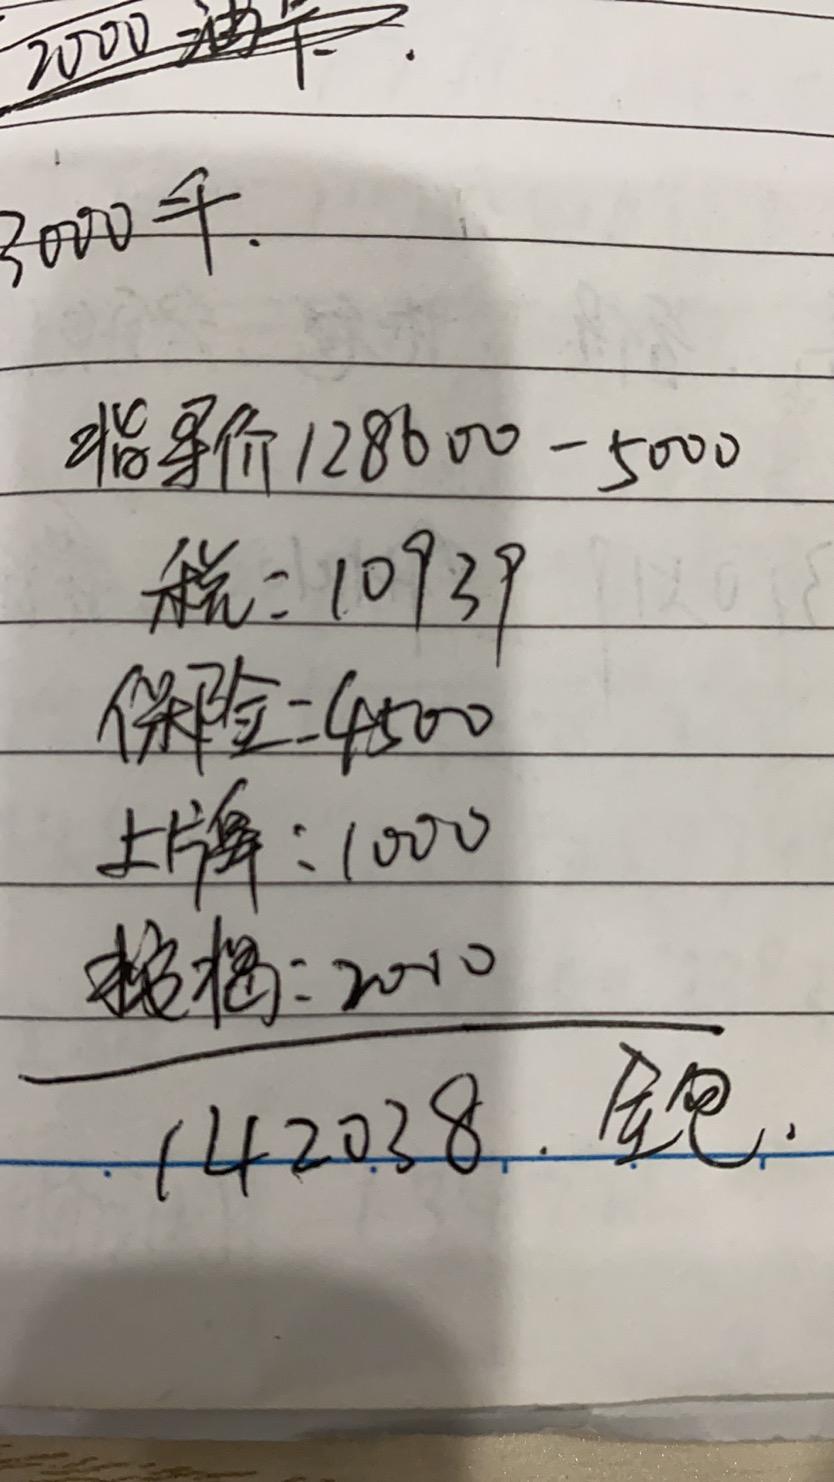 2000油卡.
3000千.
指导价128600-5000
税:10939
保险:4500
上牌:1000
按揭:2000
142038. 全包.